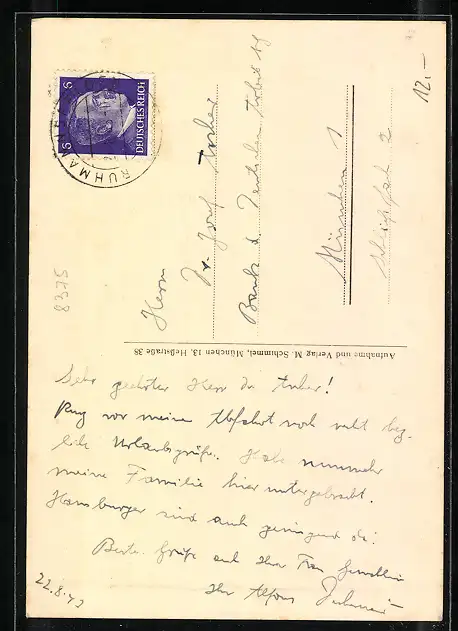 6 DEUTSCHES REICH 6
RUHMANN
12.-
Herrn
Dr. Josef
Bank d. Deutschen Arbeit AG
München 1
Schließfach 2
8375
Aufnahme und Verlag M. Schimmel, München 13, Heßstraße 38
Sehr geehrter Herr Dr.
vor meine Abfahrt noch recht herz-
liche Urlaubsgrüße. Habe nunmehr
meine Familie hier untergebracht.
Hamburger sind auch genügend da!
Beste Grüße auch Ihrer Frau Gemahlin
Ihr Alfons
22.8.43